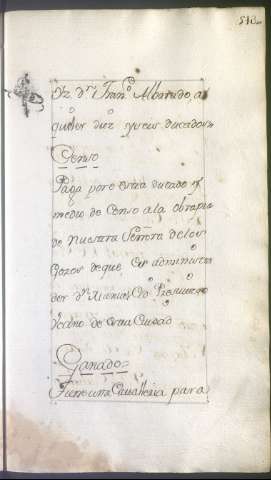 510
Dr. Dn. Franco. Albarado, al
quiler diez y seis ducados=
Censo
Paga por esta ducado y
medio de Censo a la obra pia
de nuestra Señora de los
Gozos de que es administra
dor Dn. Presuitero
Vecino de esta Ciudad
Ganado=
Tiene una Cavalleria para